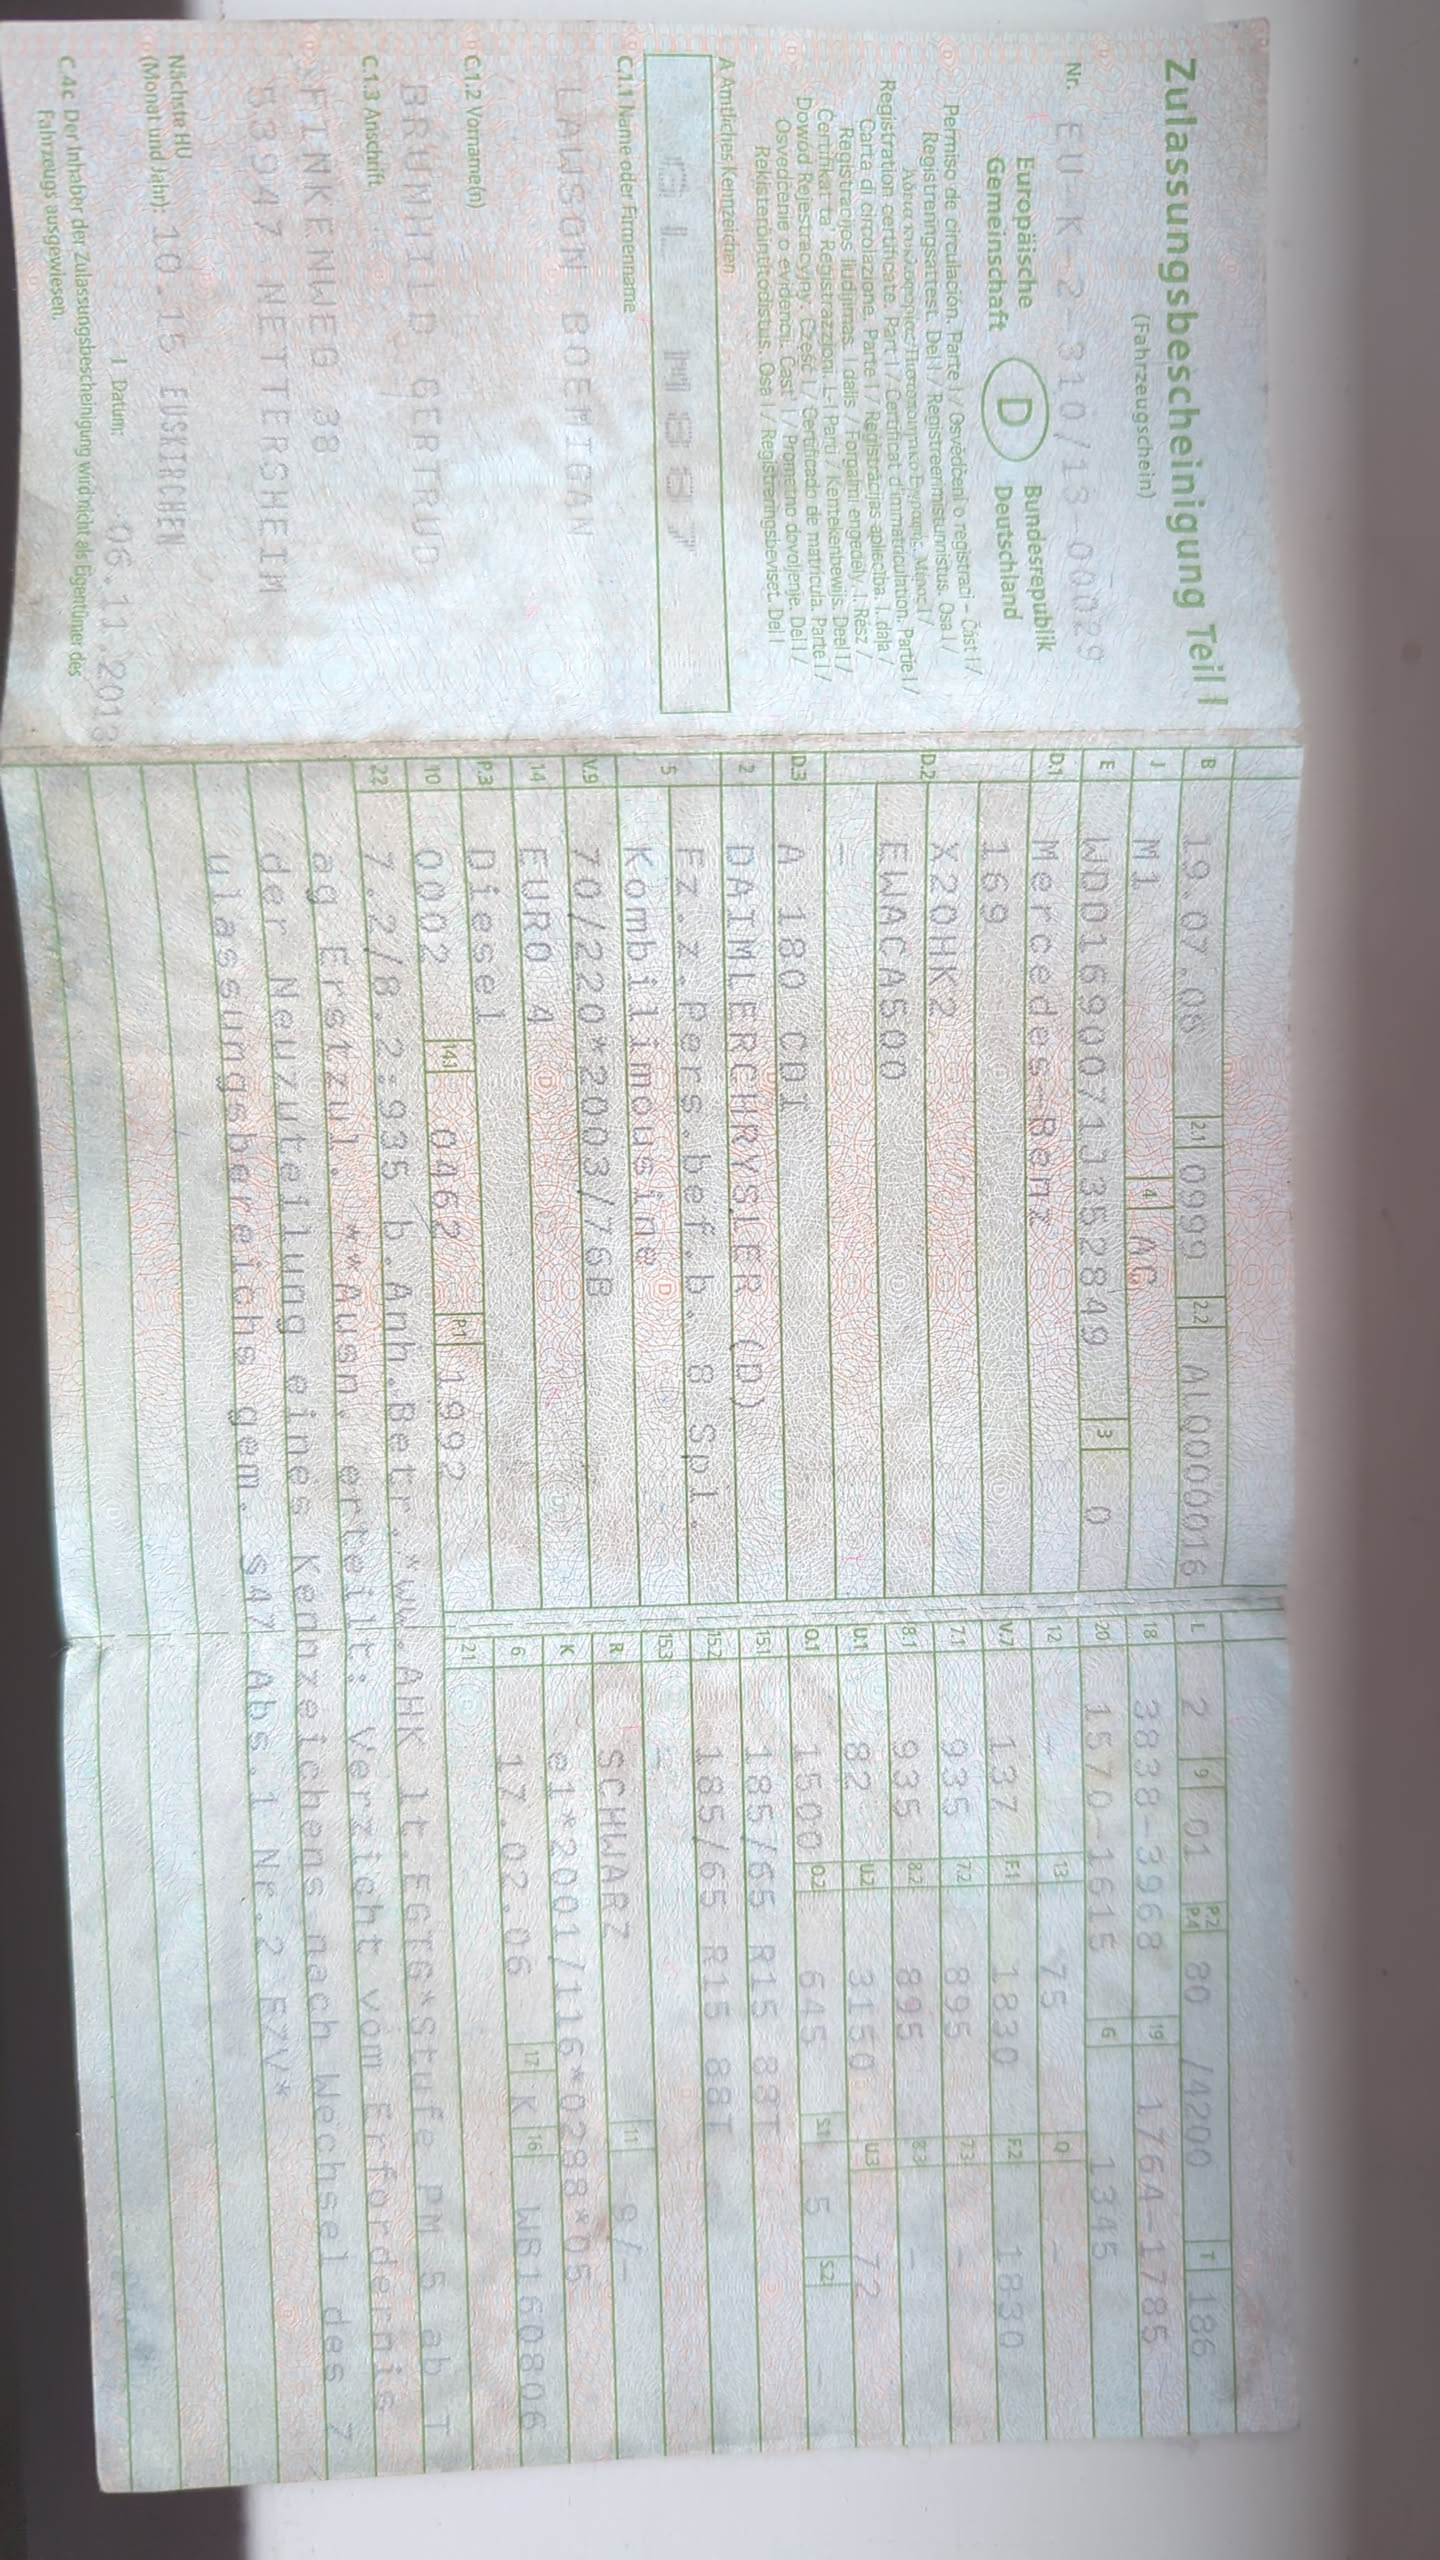 Zulassungsbescheinigung Teil I
(Fahrzeugschein)
Nr. EU-K-2-310/13-00029
Europäische Gemeinschaft
D
Bundesrepublik Deutschland
Permiso de circulación. Parte I / Osvědčení o registraci - Část I /
Registreringsattest. Del I / Registreerimistunnistus. Osa I /
Registration certificate. Part I / Certificat d'immatriculation. Partie I /
Carta di circolazione. Parte I / Reģistrācijas apliecība. I. daļa /
Registracijos liudijimas. I dalis / Forgalmi engedély. I. Rész /
Ċertifikat ta' Reġistrazzjoni. L-I Parti / Kentekenbewijs. Deel I /
Dowód Rejestracyjny. Część I / Certificado de matrícula. Parte I /
Osvedčenie o evidencii. Časť I / Prometno dovoljenje. Del I /
Rekisteröintitodistus. Osa I / Registreringsbeviset. Del I
A Amtliches Kennzeichen
C.1.1 Name oder Firmenname
LAWSON BOEMIGAN
C.1.2 Vorname(n)
BRUNHILD GERTRUD
C.1.3 Anschrift
FINKENWEG 38
53947 NETTERSHEIM
Nächste HU
(Monat und Jahr): 10.15 EUSKIRCHEN
I Datum: 06.11.2013
C.4c Der Inhaber der Zulassungsbescheinigung wird nicht als Eigentümer des
Fahrzeugs ausgewiesen.
B 19.07.06 2.1 0999 2.2 AL0000016
J M1 4 AC
E WDD1690071J352849 3 0
D.1 Mercedes-Benz
169
D.2 X20HK2
EWACA500
-
D.3 A 180 CDI
2 DAIMLERCHRYSLER (D)
5 Fz.z.Pers.bef.b. 8 Spl.
Kombilimousine
V.9 70/220*2003/76B
14 EURO 4
P.3 Diesel
10 0002 14.1 0462 P.1 1992
L 2 9 01 P.2 P.4 80 /4200 T 186
18 3838-3968 19 1764-1785
20 1570-1615 G 1345
12 - 13 75 Q -
V.7 137 F.1 1830 F.2 1830
7.1 935 7.2 895 7.3 -
8.1 935 8.2 895 8.3 -
U.1 82 U.2 3150 U.3 72
O.1 1500 O.2 645 S.1 5 S.2 -
15.1 185/65 R15 88T
15.2 185/65 R15 88T
15.3 -
R SCHWARZ 11 9/-
K e1*2001/116*0288*05
6 17.02.06 17 K 16 WB160806
21
22 7.2/8.2:935 b.Anh.Betr.*ww.AHK lt.EGTG*Stufe PM 5 ab T
ag Erstzul. **Ausn. erteilt: Verzicht vom Erfordernis
der Neuzuteilung eines Kennzeichens nach Wechsel des Z
ulassungsbereichs gem. §47 Abs.1 Nr.2 FZV*